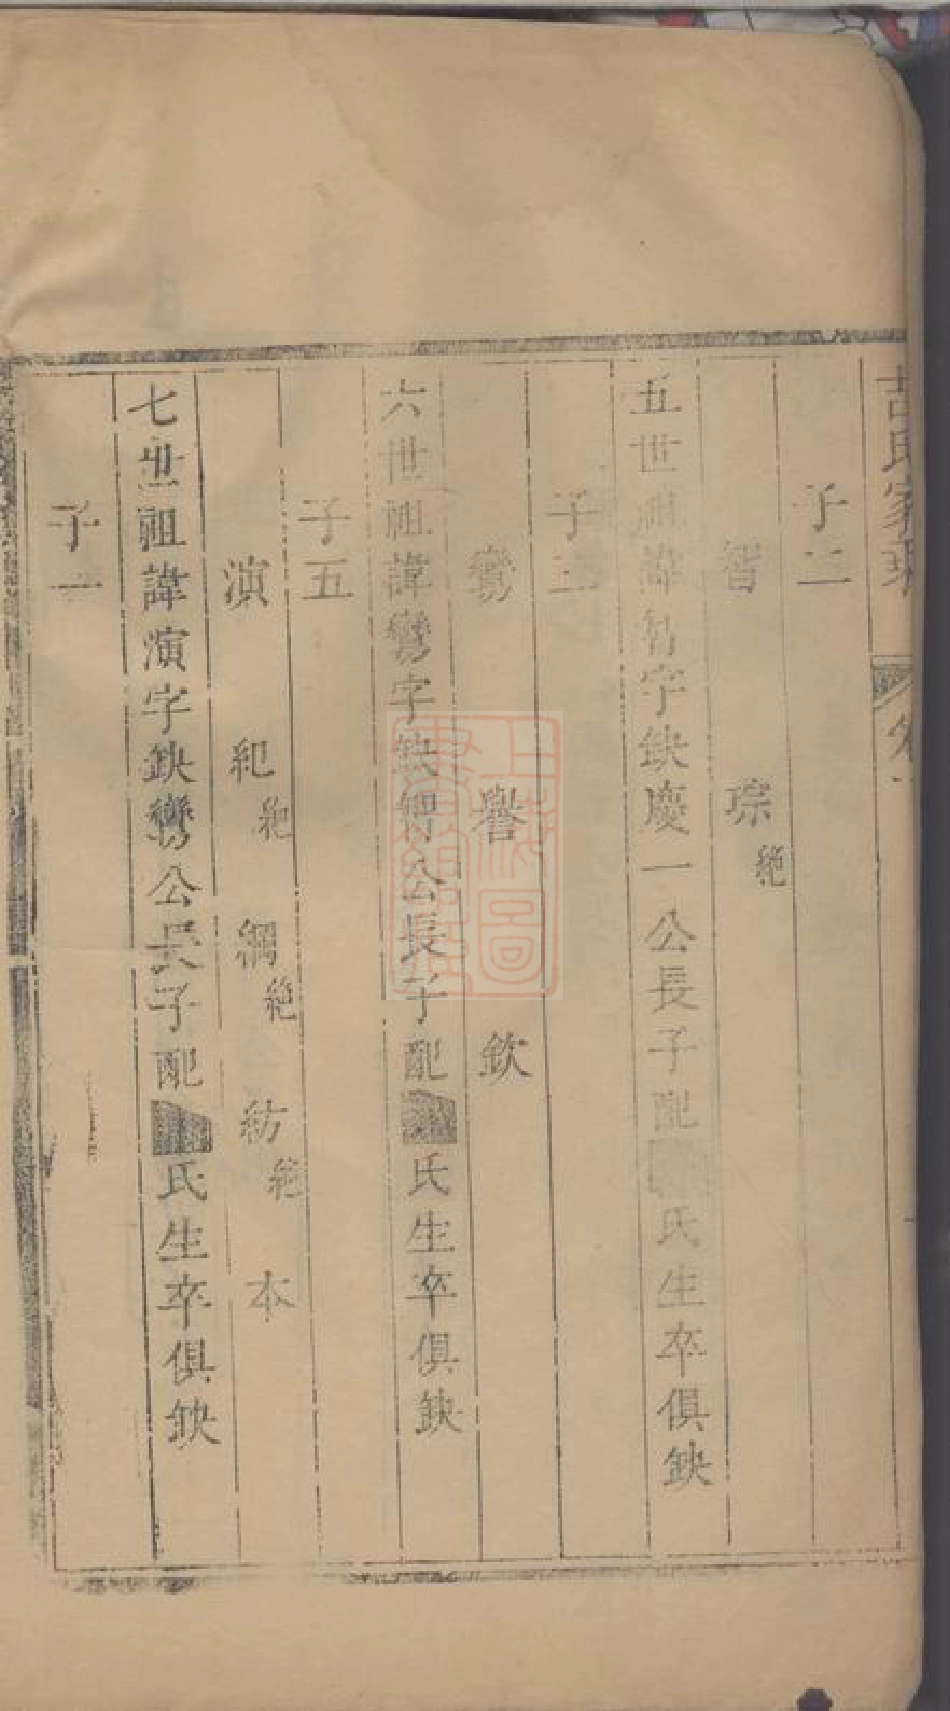 氏家
子二
智 琮絶
五世祖諱智字缺慶一公長子配氏生卒俱缺
子三
鸞 譽 欽
六世祖諱鸞字缺智公長子配氏生卒俱缺
子五
演 紀絶 綱絶 紡絶 本
七世祖諱演字缺鸞公長子配氏生卒俱缺
子一
上海圖書館藏